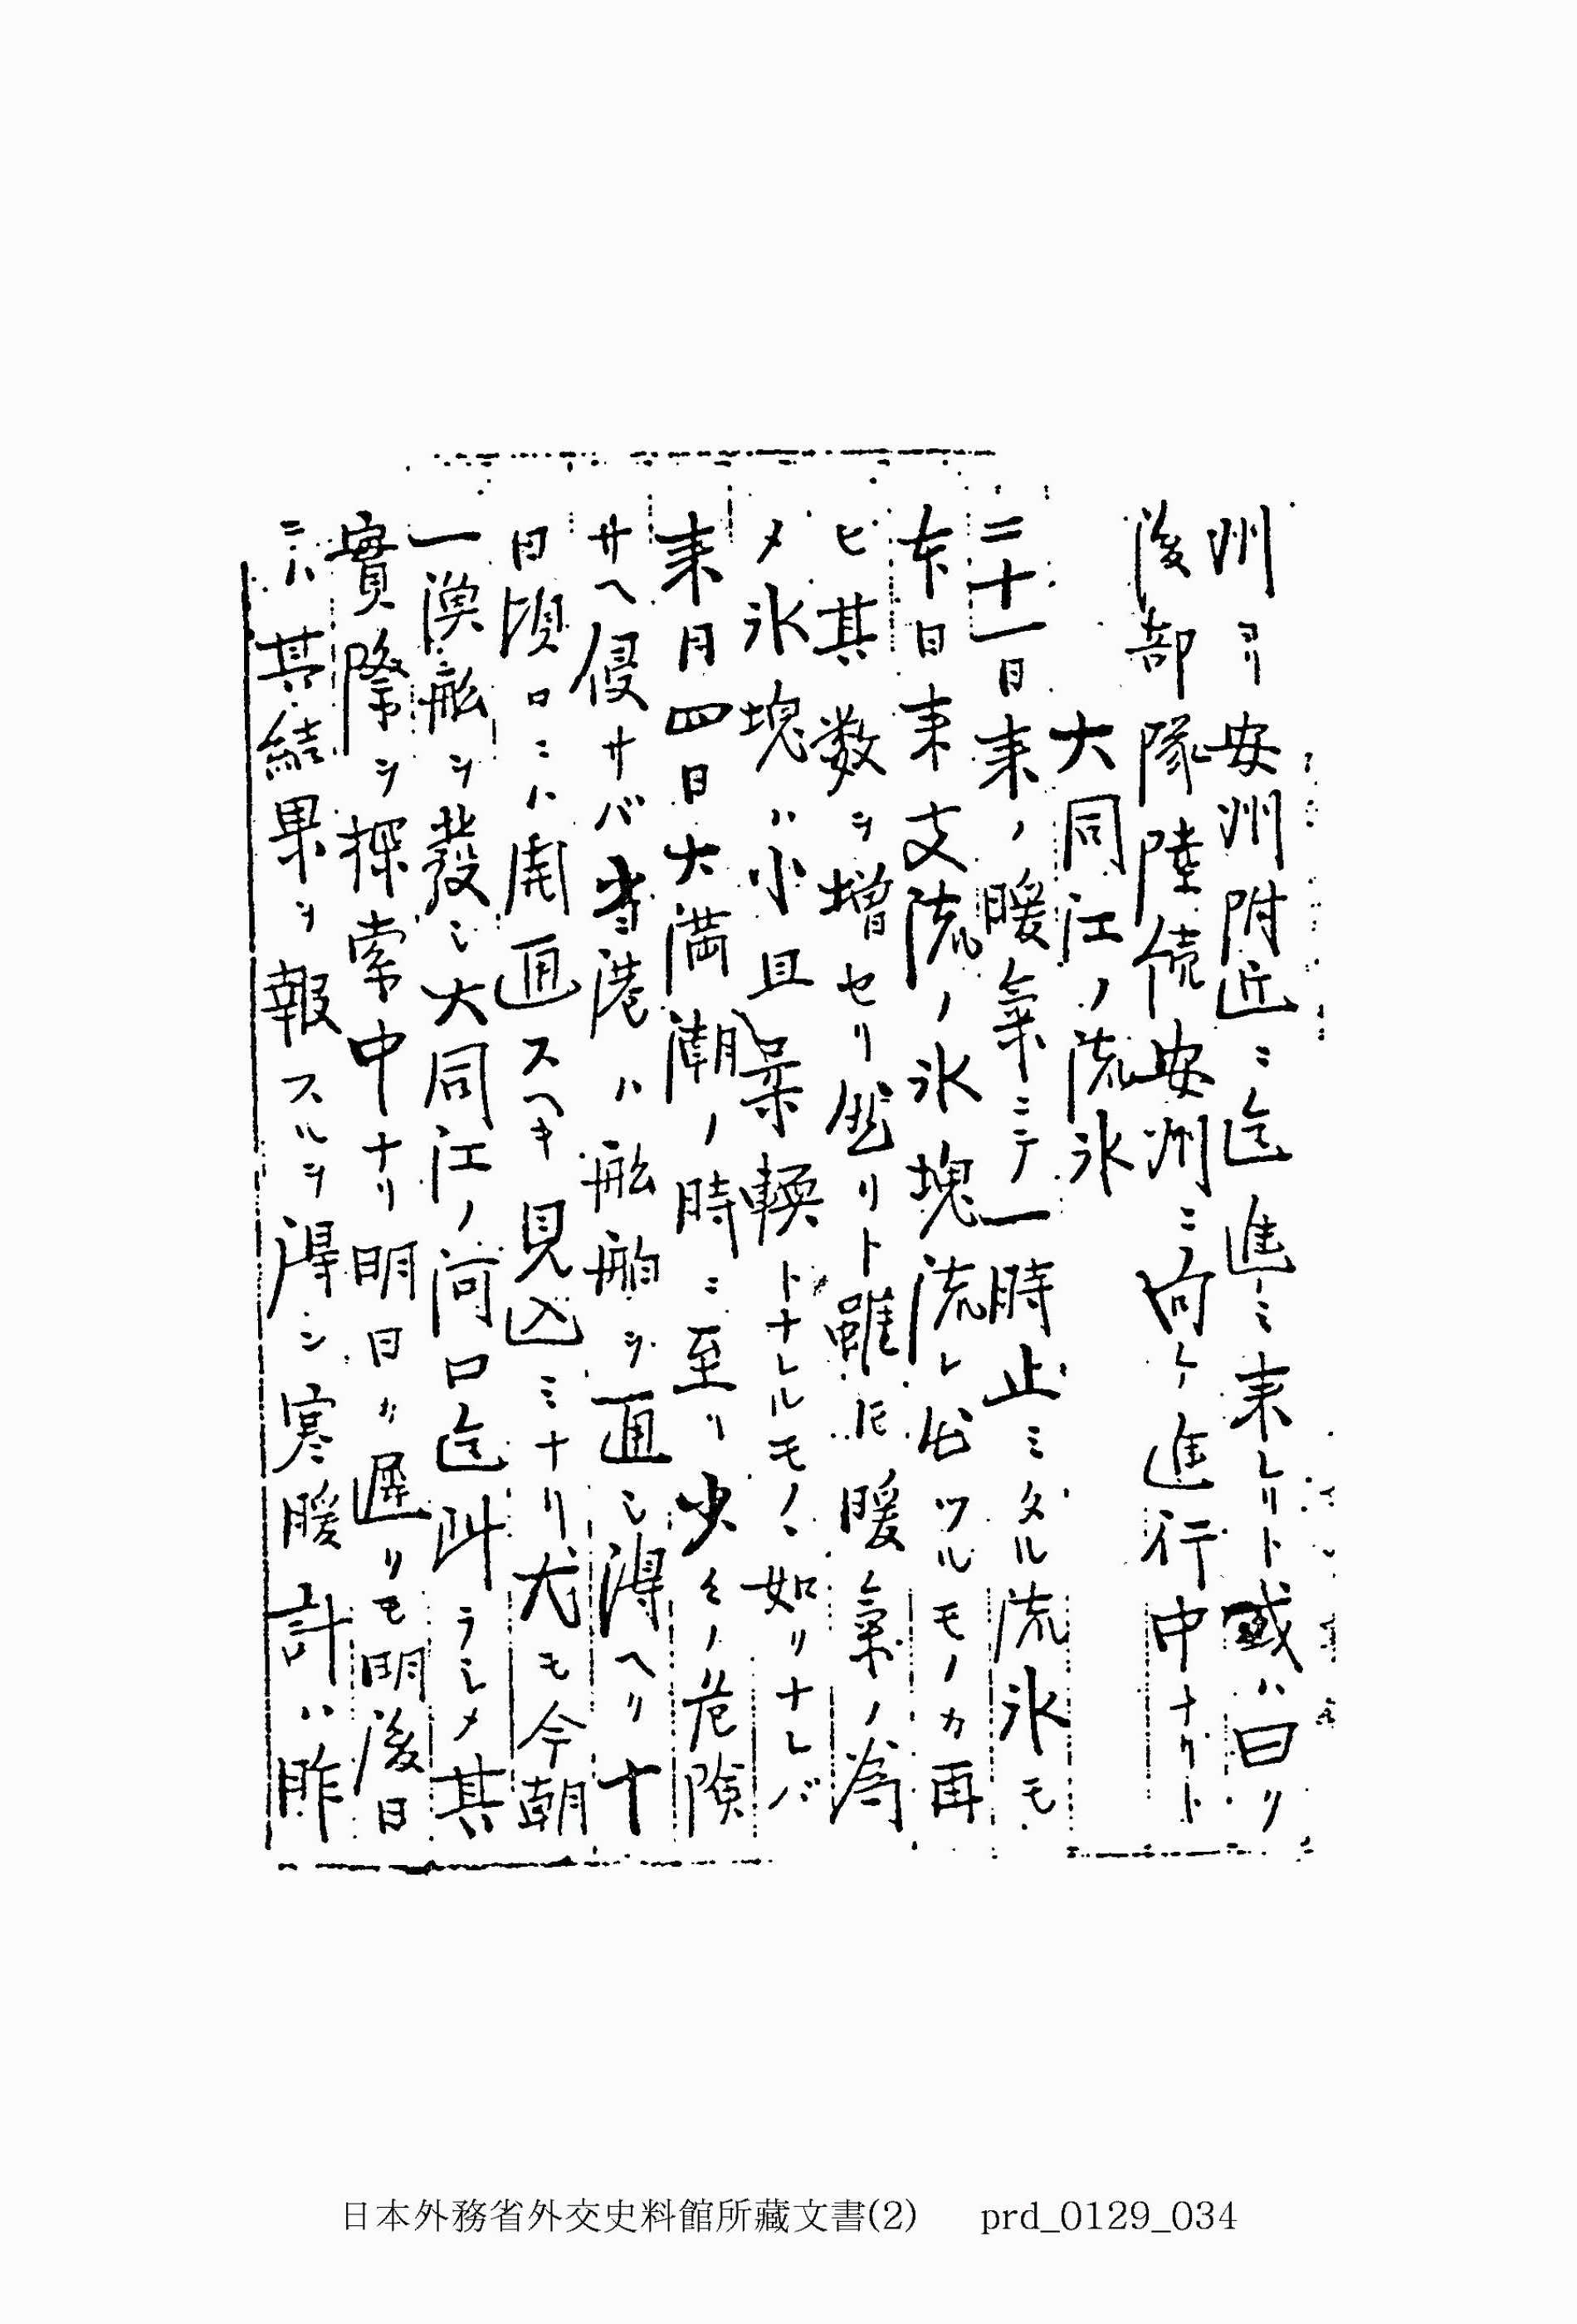 州ヨリ安州附近ニ迄進ミ来レリト或ハ曰ク
後部隊陸続安州ニ向ケ進行中ナリト
大同江ノ流氷
二十一日来ノ暖氣ニテ一時止ミタル流氷モ
本日来支流ノ氷塊流レ出ツルモノカ再
ヒ其数ヲ増セリ然リト雖𪜈暖氣ノ為
メ氷塊ハ小且柔軟トナレルモノヽ如クナレバ
来月四日大満潮ノ時ニ至リ少々ノ危険
サヘ侵サバ当港ハ舩舶ヲ通シ得ヘク十
日頃ロニハ開通スヘキ見込ミナリ尤モ今朝
一漁舩ヲ發シ大同江ノ河口迄下ラシメ其
實際ヲ探索中ナリ明日カ遅クモ明後日
ニハ其結果ヲ報スルヲ得ン寒暖計ハ昨
日本外務省外交史料館所藏文書(2) prd_0129_034